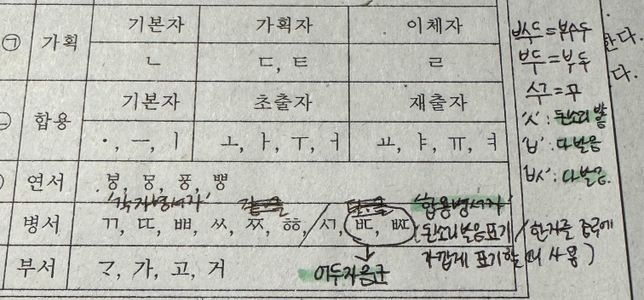 ㉠ 가획 기본자 가획자 이체자
ㄴ ㄷ, ㅌ ㄹ
합용 기본자 초출자 재출자
ㆍ, ㅡ, ㅣ ㅗ, ㅏ, ㅜ, ㅓ ㅛ, ㅑ, ㅠ, ㅕ
연서 ㅸ, ㅱ, ㆄ, ㅹ
'각자병서자' '합용병서자'
병서 ㄲ, ㄸ, ㅃ, ㅆ, ㅉ, ㆅ, / ㅺ, ㅳ, ㅄ
(된소리 발음 표기 / 한자를 중국에
가깝게 표기할 때 사용)
부서 가, 고, 거
어두자음군
한다.
다.
= 부수두
= 부두
= 꾸
'ㅅ': 된소리 발
'ㅂ': 다 발음
'ㅄ': 다 발음